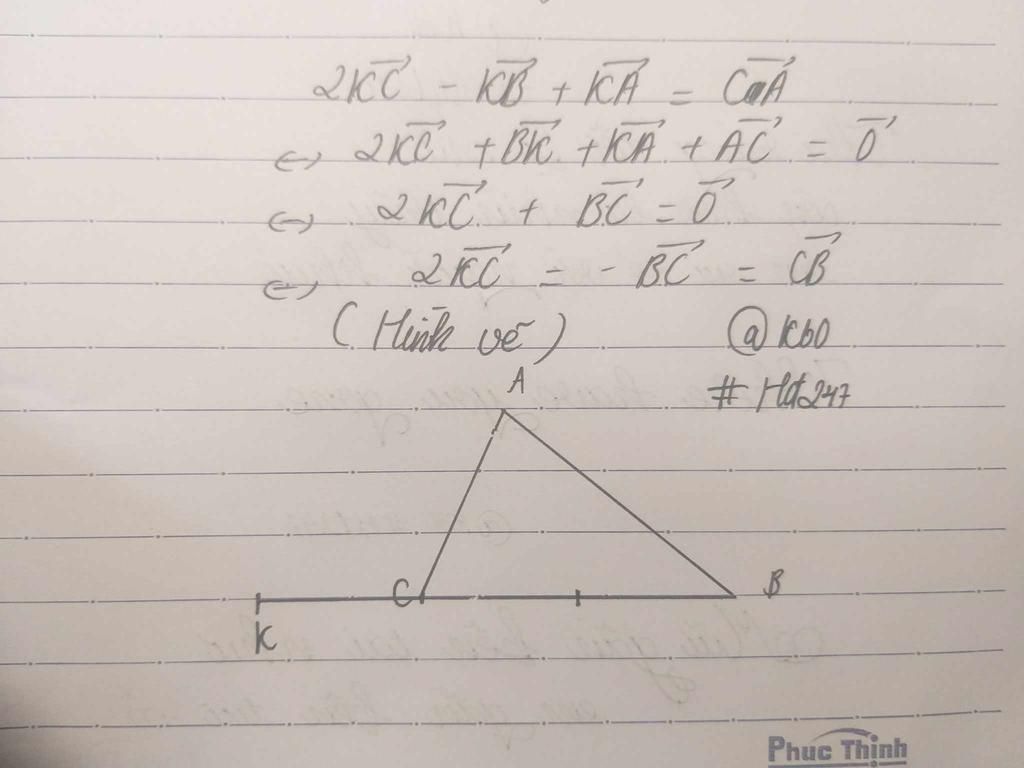 2KC→ - KB→ + KA→ = CA→
<=> 2KC→ + BK→ + KA→ + AC→ = 0→
<=> 2KC→ + BC→ = 0→
<=> 2KC→ = - BC→ = CB→
(Hình vẽ) @Kb0
# Hd247
A
C B
K
Phuc Thịnh